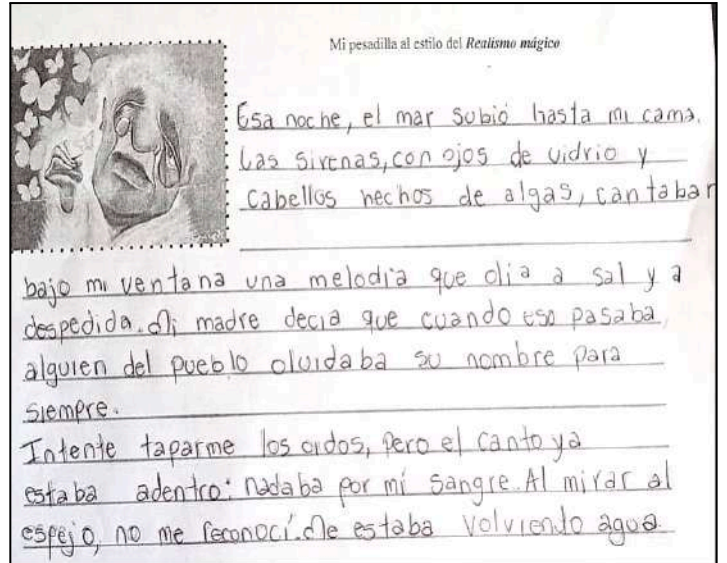 Mi pesadilla al estilo del Realismo mágico
Esa noche, el mar subió hasta mi cama.
Las sirenas, con ojos de vidrio y
cabellos hechos de algas, cantaban
bajo mi ventana una melodía que olía a sal y a
despedida. Mi madre decía que cuando eso pasaba,
alguien del pueblo olvidaba su nombre para
siempre.
Intente taparme los oidos, pero el canto ya
estaba adentro: nadaba por mi sangre. Al mirar al
espejo, no me reconocí. Me estaba volviendo agua.